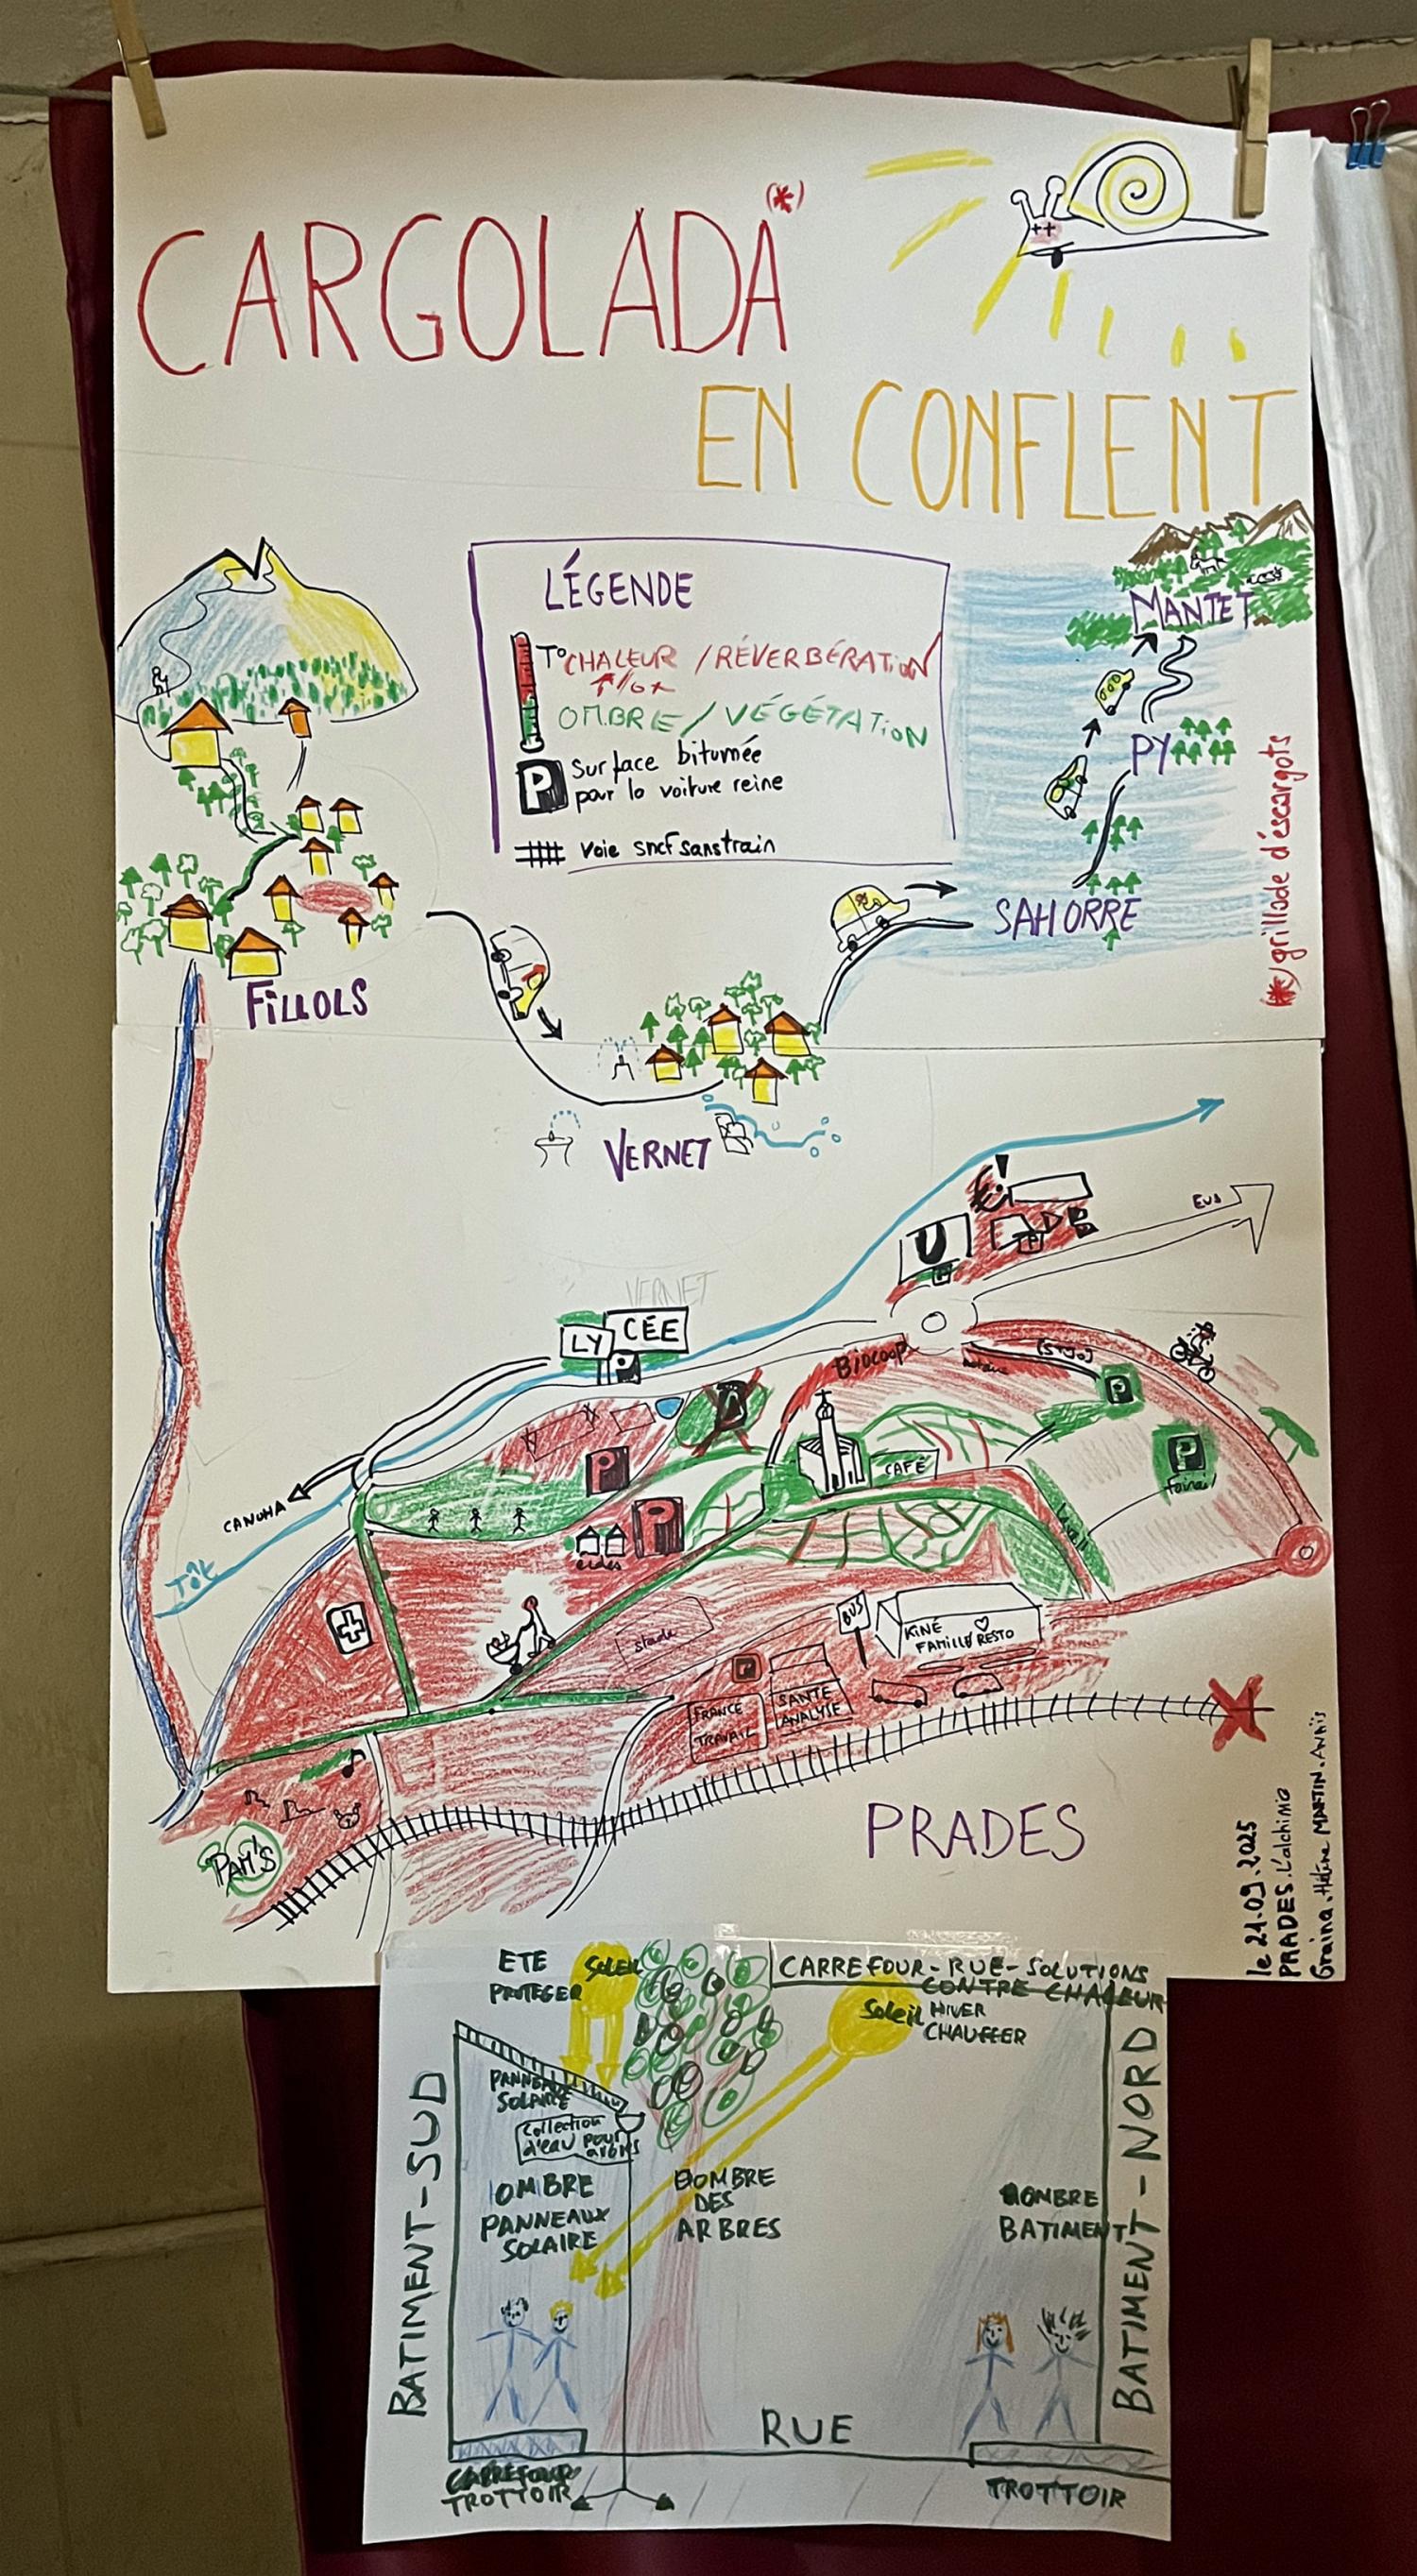 CARGOLADA (*)
EN CONFLENT
LÉGENDE
T° CHALEUR / RÉVERBÉRATION
OMBRE / VÉGÉTATION
P Surface bitumée
pour la voiture reine
voie sncf sans train
MANTET
PY
SAHORRE
(*) grillade d'éscargots
FILLOLS
VERNET
EUS
U
VERNET
LY CÉE
P
BIOCOOP
P
CAFÉ
P
P
P
CANOHA
Têt
stade
BUS
KINÉ
FAMILLE RESTO
P
FRANCE
TRAVAIL
SANTE
ANALYSE
PAM'S
PRADES
le 21.09.2025
PRADES. L'alchimie
Graina. Hélène MARTIN. Anaïs
ETE
PROTEGER
SOLEIL
CARREFOUR-RUE-SOLUTIONS
CONTRE CHALEUR
Soleil HIVER
CHAUFFER
PANNEAU
SOLAIRE
Collection
d'eau pour
arbres
OMBRE
PANNEAUX
SOLAIRE
OMBRE
DES
ARBRES
OMBRE
BATIMENT
BATIMENT-SUD
BATIMENT-NORD
RUE
CARREFOUR
TROTTOIR
TROTTOIR